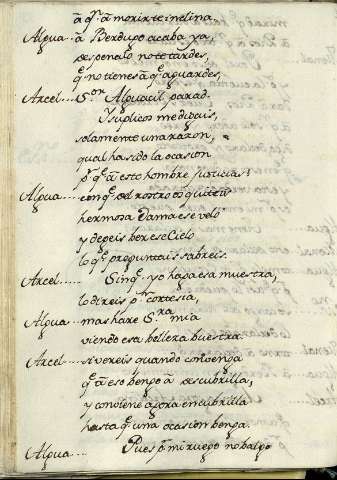 â q.e â morirte inclina.
Algua. â Berdugo acaba ya,
despenalo no te tardes,
q.e no tienes â q.e aguardes,
Arcel.... S.or Alguacil parad.
Y suplico me digais,
solamente una razon,
qual ha sido la ocasion
p.r q.e â esto hombre justiciais?
Algua... con q.e del rostro os quiteis
hermosa Dama ese velo
y dejeis ber ese Cielo
lo q.e preguntais sabreis.
Arcel.... Sin q.e yo haga esa muestra,
lo direis p.r cortesia,
Algua.... mas hare S.ra mia
viendo esa belleza buestra.
Arcel.... si vereis quando conbenga
q.e â eso bengo â descubrilla,
y conviene agora encubrilla
hasta q.e una ocasion benga.
Algua.... Pues p.r mi ruego no balgo